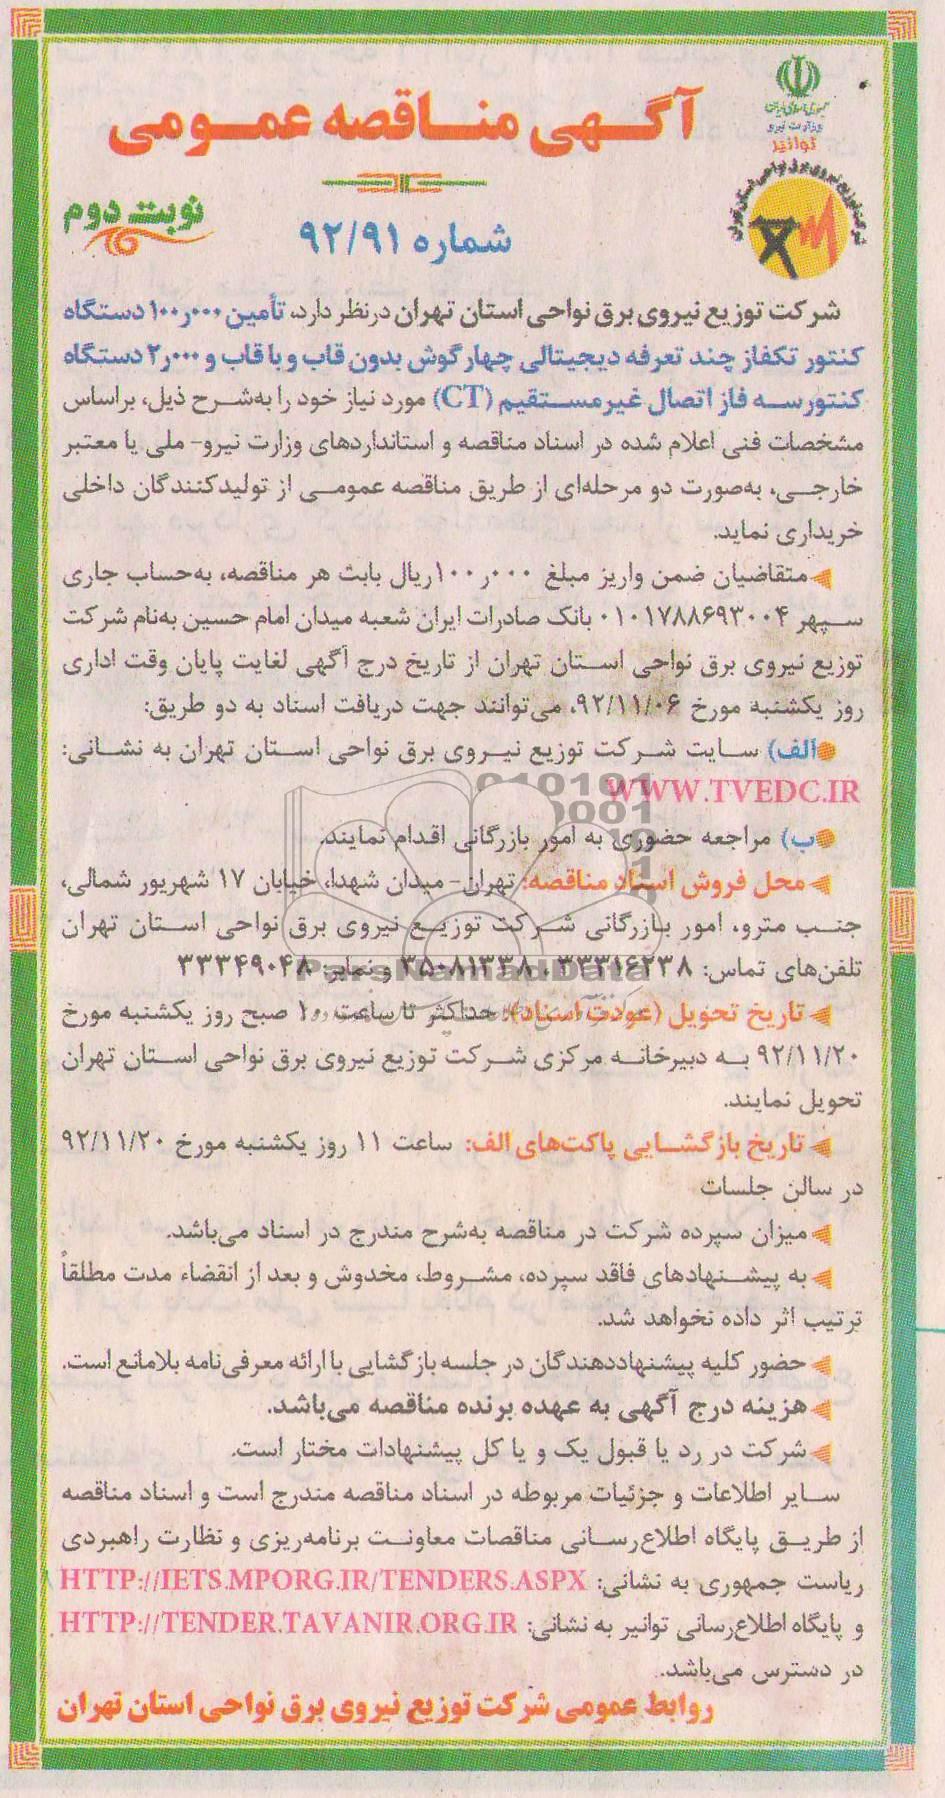 جمهوری اسلامی ایران
وزارت نیرو
توانیر
شرکت توزیع نیروی برق نواحی استان تهران
آگهی مناقصه عمومی
نوبت دوم
شماره ۹۲/۹۱
شرکت توزیع نیروی برق نواحی استان تهران درنظر دارد، تأمین ۱۰۰٫۰۰۰ دستگاه
کنتور تکفاز چند تعرفه دیجیتالی چهار گوش بدون قاب و با قاب و ۲٫۰۰۰ دستگاه
کنتور سه فاز اتصال غیرمستقیم (CT) مورد نیاز خود را به‌شرح ذیل، براساس
مشخصات فنی اعلام شده در اسناد مناقصه و استانداردهای وزارت نیرو- ملی یا معتبر
خارجی، به‌صورت دو مرحله‌ای از طریق مناقصه عمومی از تولیدکنندگان داخلی
خریداری نماید.
متقاضیان ضمن واریز مبلغ ۱۰۰٫۰۰۰ ریال بابت هر مناقصه، به‌حساب جاری
سپهر ۰۱۰۱۷۸۸۶۹۳۰۰۴ بانک صادرات ایران شعبه میدان امام حسین به‌نام شرکت
توزیع نیروی برق نواحی استان تهران از تاریخ درج آگهی لغایت پایان وقت اداری
روز یکشنبه مورخ ۹۲/۱۱/۰۶، می‌توانند جهت دریافت اسناد به دو طریق:
الف) سایت شرکت توزیع نیروی برق نواحی استان تهران به نشانی:
WWW.TVEDC.IR
ب) مراجعه حضوری به امور بازرگانی اقدام نمایند.
محل فروش اسناد مناقصه: تهران- میدان شهدا، خیابان ۱۷ شهریور شمالی،
جنب مترو، امور بازرگانی شرکت توزیع نیروی برق نواحی استان تهران
تلفن‌های تماس: ۳۳۳۱۶۲۳۸ ، ۳۵۰۸۱۳۳۸ و نمابر: ۳۳۳۴۹۰۴۸
ParsNamadData
تاریخ تحویل (عودت اسناد): حداکثر تا ساعت ۱۰ صبح روز یکشنبه مورخ
۹۲/۱۱/۲۰ به دبیرخانه مرکزی شرکت توزیع نیروی برق نواحی استان تهران
تحویل نمایند.
تاریخ بازگشایی پاکت‌های الف: ساعت ۱۱ روز یکشنبه مورخ ۹۲/۱۱/۲۰
در سالن جلسات
میزان سپرده شرکت در مناقصه به‌شرح مندرج در اسناد می‌باشد.
به پیشنهادهای فاقد سپرده، مشروط، مخدوش و بعد از انقضاء مدت مطلقاً
ترتیب اثر داده نخواهد شد.
حضور کلیه پیشنهاددهندگان در جلسه بازگشایی با ارائه معرفی‌نامه بلامانع است.
هزینه درج آگهی به عهده برنده مناقصه می‌باشد.
شرکت در رد یا قبول یک و یا کل پیشنهادات مختار است.
سایر اطلاعات و جزئیات مربوطه در اسناد مناقصه مندرج است و اسناد مناقصه
از طریق پایگاه اطلاع‌رسانی مناقصات معاونت برنامه‌ریزی و نظارت راهبردی
ریاست جمهوری به نشانی: HTTP://IETS.MPORG.IR/TENDERS.ASPX
و پایگاه اطلاع‌رسانی توانیر به نشانی: HTTP://TENDER.TAVANIR.ORG.IR
در دسترس می‌باشد.
روابط عمومی شرکت توزیع نیروی برق نواحی استان تهران